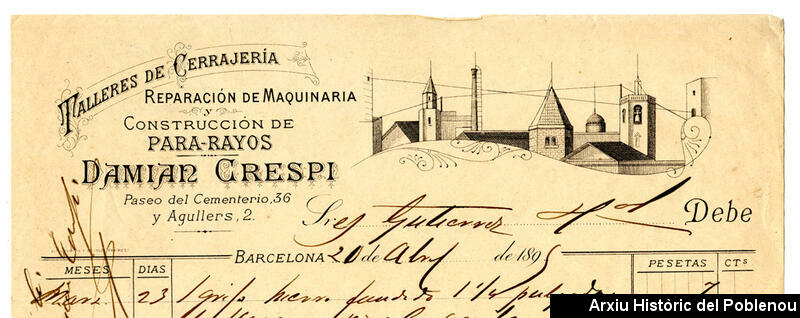 TALLERES DE CERRAJERÍA
REPARACIÓN DE MAQUINARIA
y
CONSTRUCCIÓN DE
PARA-RAYOS
DAMIAN CRESPI
Paseo del Cementerio, 36
y Agullers, 2.
Sres Gutierrez Debe
BARCELONA 20 de Abril de 1895
MESES DIAS PESETAS CTS
Marzo 23 1 grifo hierro fundido 1 1/4 7
Arxiu Històric del Poblenou